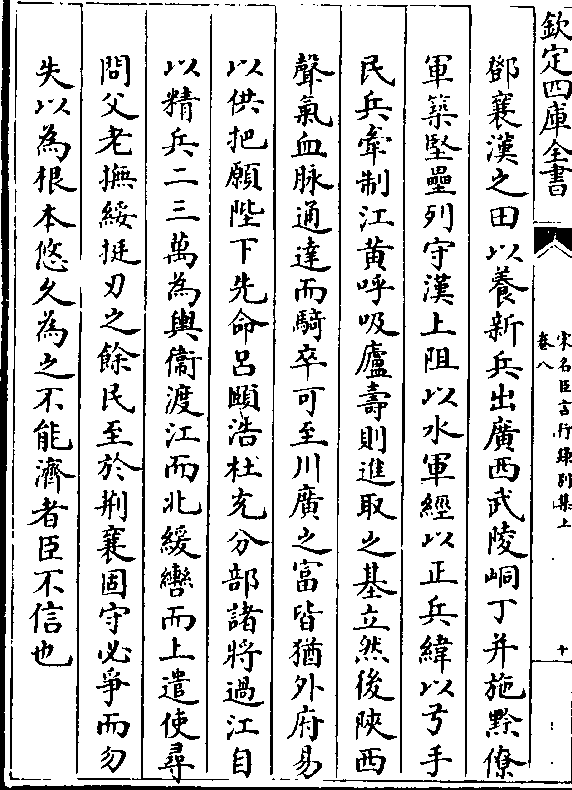 欽定四庫全書
宋名臣言行録別集上
卷八
十
鄧襄漢之田以養新兵出廣西武陵峒丁并施黔僚
軍築堅壘列守漢上阻以水軍經以正兵緯以弓手
民兵牽制江黄呼吸廬壽則進取之基立然後陜西
聲氣血脉通達而騎卒可至川廣之富皆猶外府易
以供把願陛下先命吕頤浩杜充分部諸將過江自
以精兵二三萬為輿衞渡江而北緩轡而上遣使尋
問父老撫綏挺刃之餘民至於荆襄固守必爭而勿
失以為根本悠久為之不能濟者臣不信也